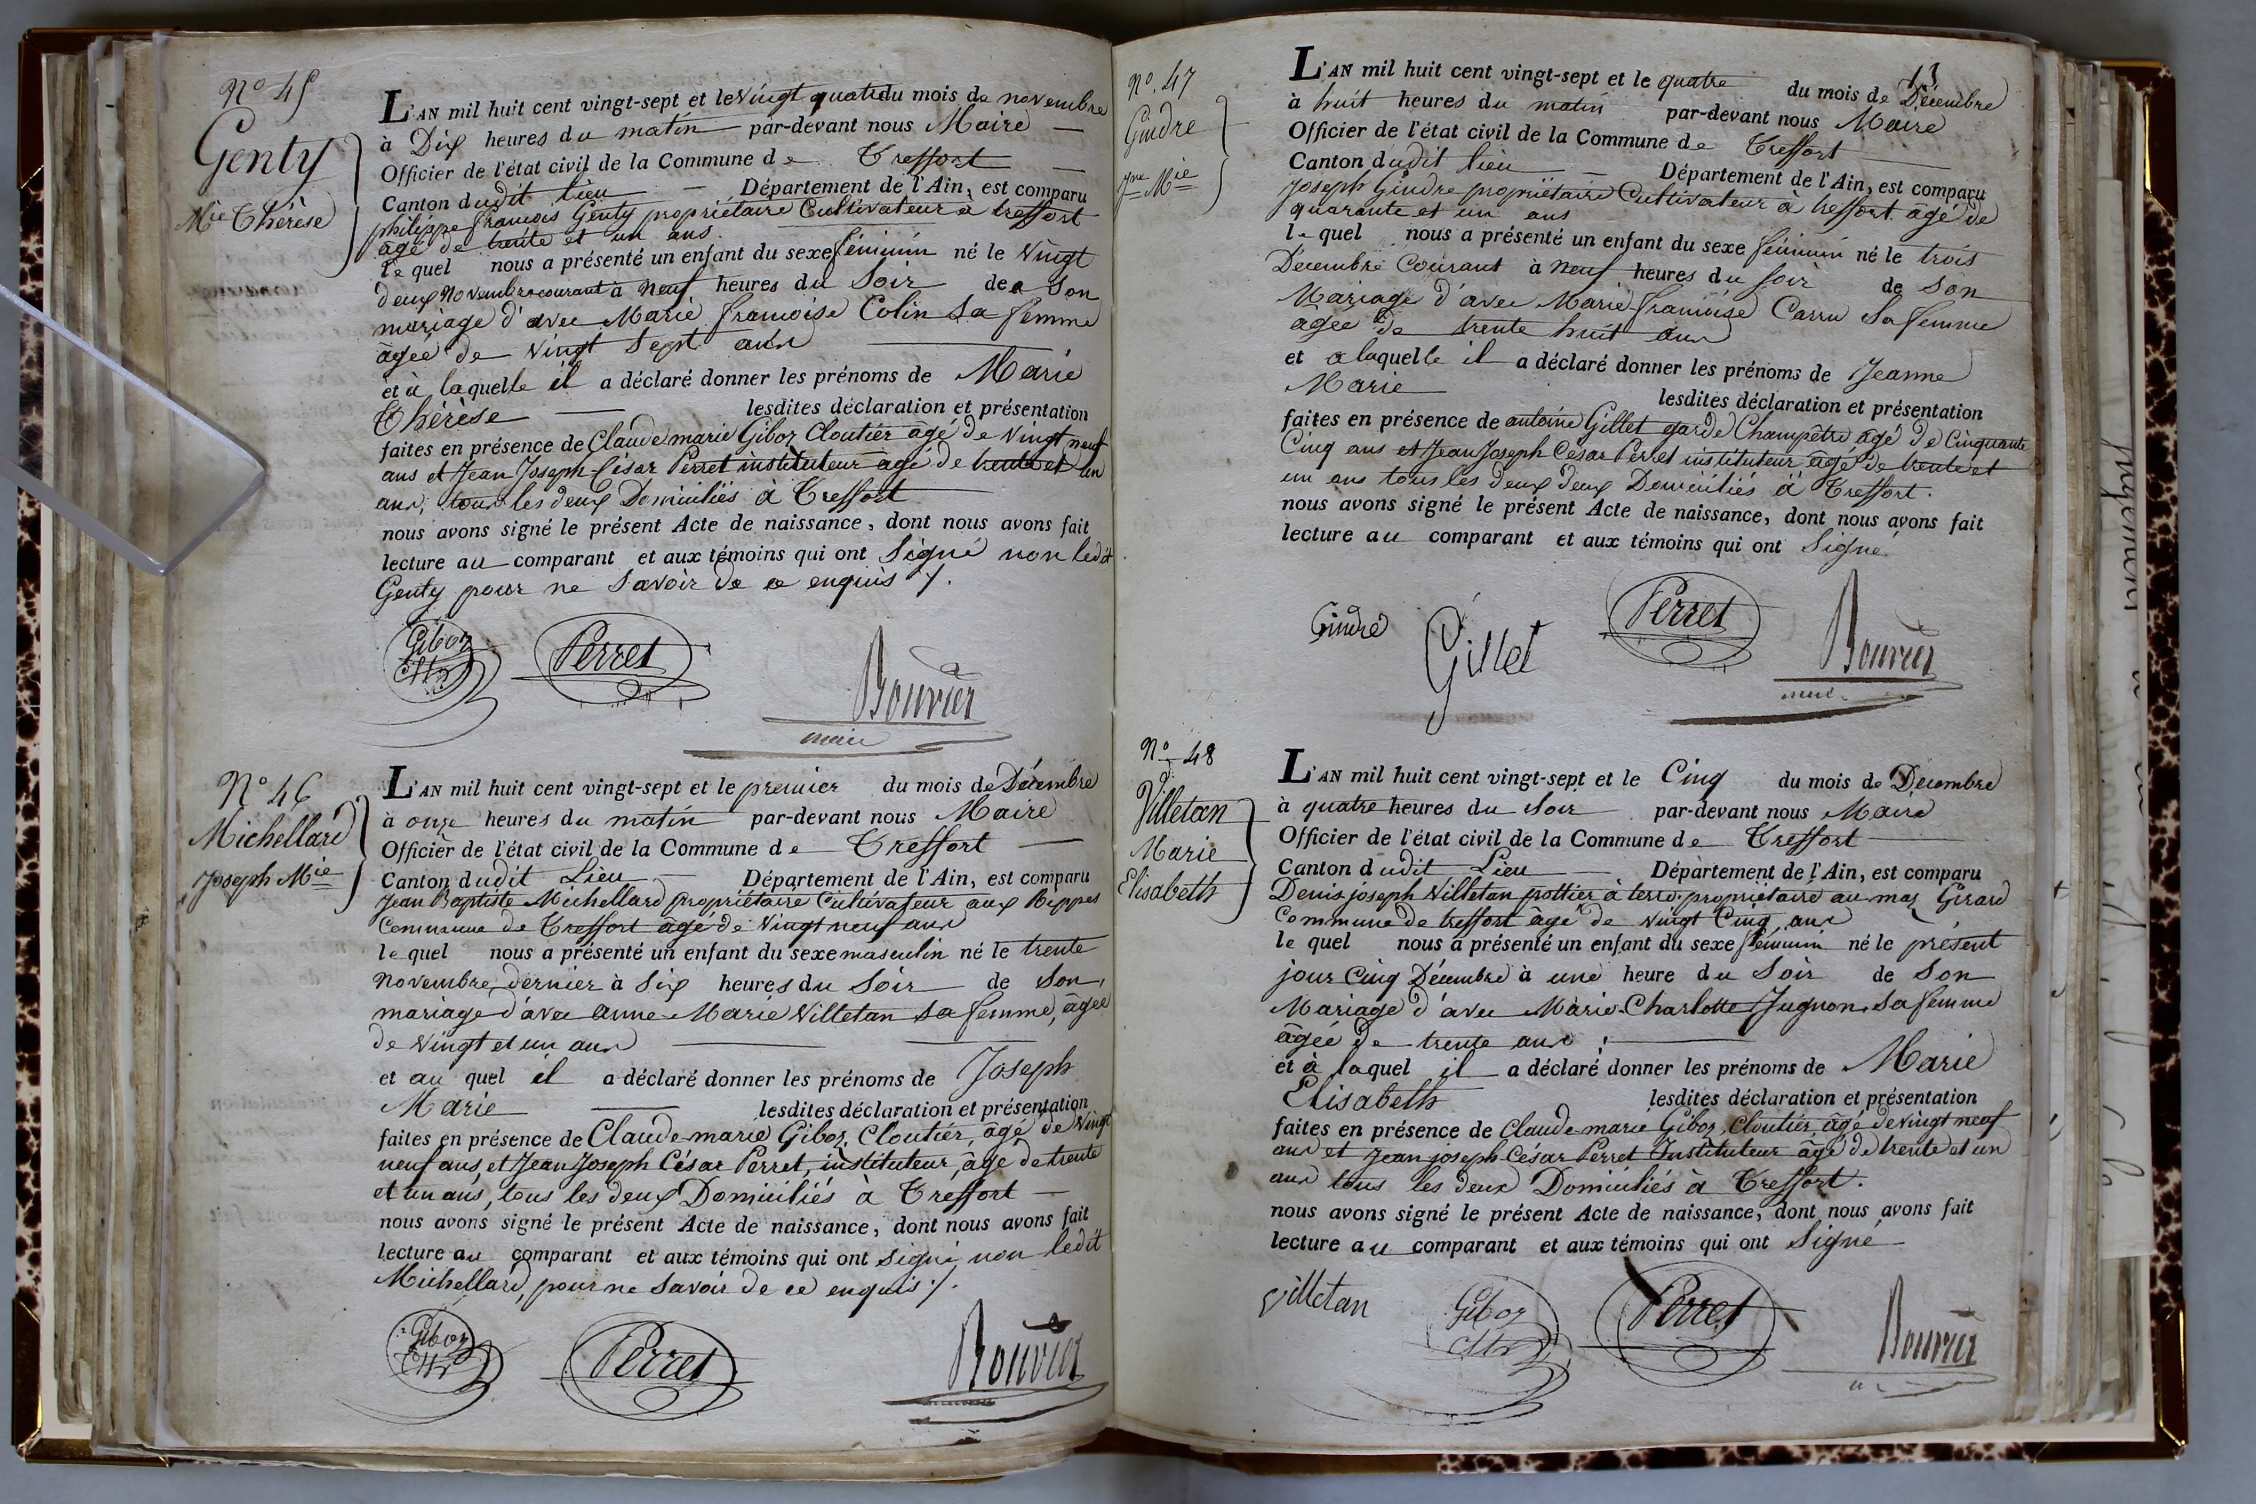 N.o 45
Genty
M.ie Thérèse
L'AN mil huit cent vingt-sept et le vingt quatre du mois de novembre
à Dix heures du matin par-devant nous Maire
Officier de l'état civil de la Commune de Treffort
Canton dudit lieu Département de l'Ain, est comparu
philippe françois Genty propriétaire Cultivateur à treffort
âgé de trente et un ans.
lequel nous a présenté un enfant du sexe féminin né le vingt
deux novembre courant à neuf heures du Soir de Son
mariage d'avec Marie françoise Colin sa femme
âgée de vingt sept ans
et à laquelle il a déclaré donner les prénoms de Marie
Thérèse lesdites déclaration et présentation
faites en présence de Claude marie Giboz Cloutier âgé de vingt neuf
ans et Jean Joseph César Perret instituteur âgé de trente et un
ans, tous les deux Domiciliés à Treffort
nous avons signé le présent Acte de naissance, dont nous avons fait
lecture au comparant et aux témoins qui ont Signé non ledit
Genty pour ne Savoir de ce enquis ./.
Giboz
Perret
Bouvier
maire
N.o 46
Michellard
Joseph M.ie
L'AN mil huit cent vingt-sept et le premier du mois de Décembre
à onze heures du matin par-devant nous Maire
Officier de l'état civil de la Commune de Treffort
Canton dudit Lieu Département de l'Ain, est comparu
Jean Baptiste Michellard propriétaire Cultivateur aux Rippes
Commune de Treffort âgé de Vingt neuf ans
lequel nous a présenté un enfant du sexe masculin né le trente
novembre dernier à Six heures du Soir de Son
mariage d'avec anne Marie Villetan sa femme, âgée
de vingt et un ans
et au quel il a déclaré donner les prénoms de Joseph
Marie lesdites déclaration et présentation
faites en présence de Claude marie Giboz Cloutier, âgé de vingt
neuf ans, et Jean Joseph César Perret, instituteur, âgé de trente
et un ans, tous les deux Domiciliés à Treffort
nous avons signé le présent Acte de naissance, dont nous avons fait
lecture au comparant et aux témoins qui ont signé non ledit
Michellard, pour ne Savoir de ce enquis ./.
Giboz
Perret
Bouvier
13
N.o 47
Gindre
J.ne M.ie
L'AN mil huit cent vingt-sept et le quatre du mois de Décembre
à huit heures du matin par-devant nous Maire
Officier de l'état civil de la Commune de Treffort
Canton dudit lieu Département de l'Ain, est comparu
Joseph Gindre propriétaire Cultivateur à treffort âgé de
quarante et un ans
lequel nous a présenté un enfant du sexe féminin né le trois
Décembre Courant à neuf heures du soir de Son
Mariage d'avec Marie françoise Carru Sa femme
agée de trente huit ans
et a laquelle il a déclaré donner les prénoms de Jeanne
Marie lesdites déclaration et présentation
faites en présence de antoine Gillet garde Champêtre âgé de Cinquante
Cinq ans et Jean Joseph César Perret instituteur âgé de trente et
un ans tous les deux deux Domiciliés à Treffort.
nous avons signé le présent Acte de naissance, dont nous avons fait
lecture au comparant et aux témoins qui ont Signé
Gindre
Gillet
Perret
Bouvier
N.o 48
Villetan
Marie
Elisabeth
L'AN mil huit cent vingt-sept et le Cinq du mois de Décembre
à quatre heures du Soir par-devant nous Maire
Officier de l'état civil de la Commune de Treffort
Canton dudit Lieu Département de l'Ain, est comparu
Denis joseph Villetan pottier à terre propriétaire au mas Girard
Commune de treffort âgé de vingt Cinq ans
lequel nous a présenté un enfant du sexe féminin né le présent
jour Cinq Décembre à une heure du Soir de Son
Mariage d'avec Marie Charlotte Jugnon Sa femme
âgée de trente ans
et à laquel il a déclaré donner les prénoms de Marie
Elisabeth lesdites déclaration et présentation
faites en présence de Claude marie Giboz Cloutier âgé de vingt neuf
ans et Jean joseph César Perret Instituteur âgé de trente et un
ans tous les deux Domiciliés à Treffort.
nous avons signé le présent Acte de naissance, dont nous avons fait
lecture au comparant et aux témoins qui ont Signé
Villetan
Giboz
Perret
Bouvier